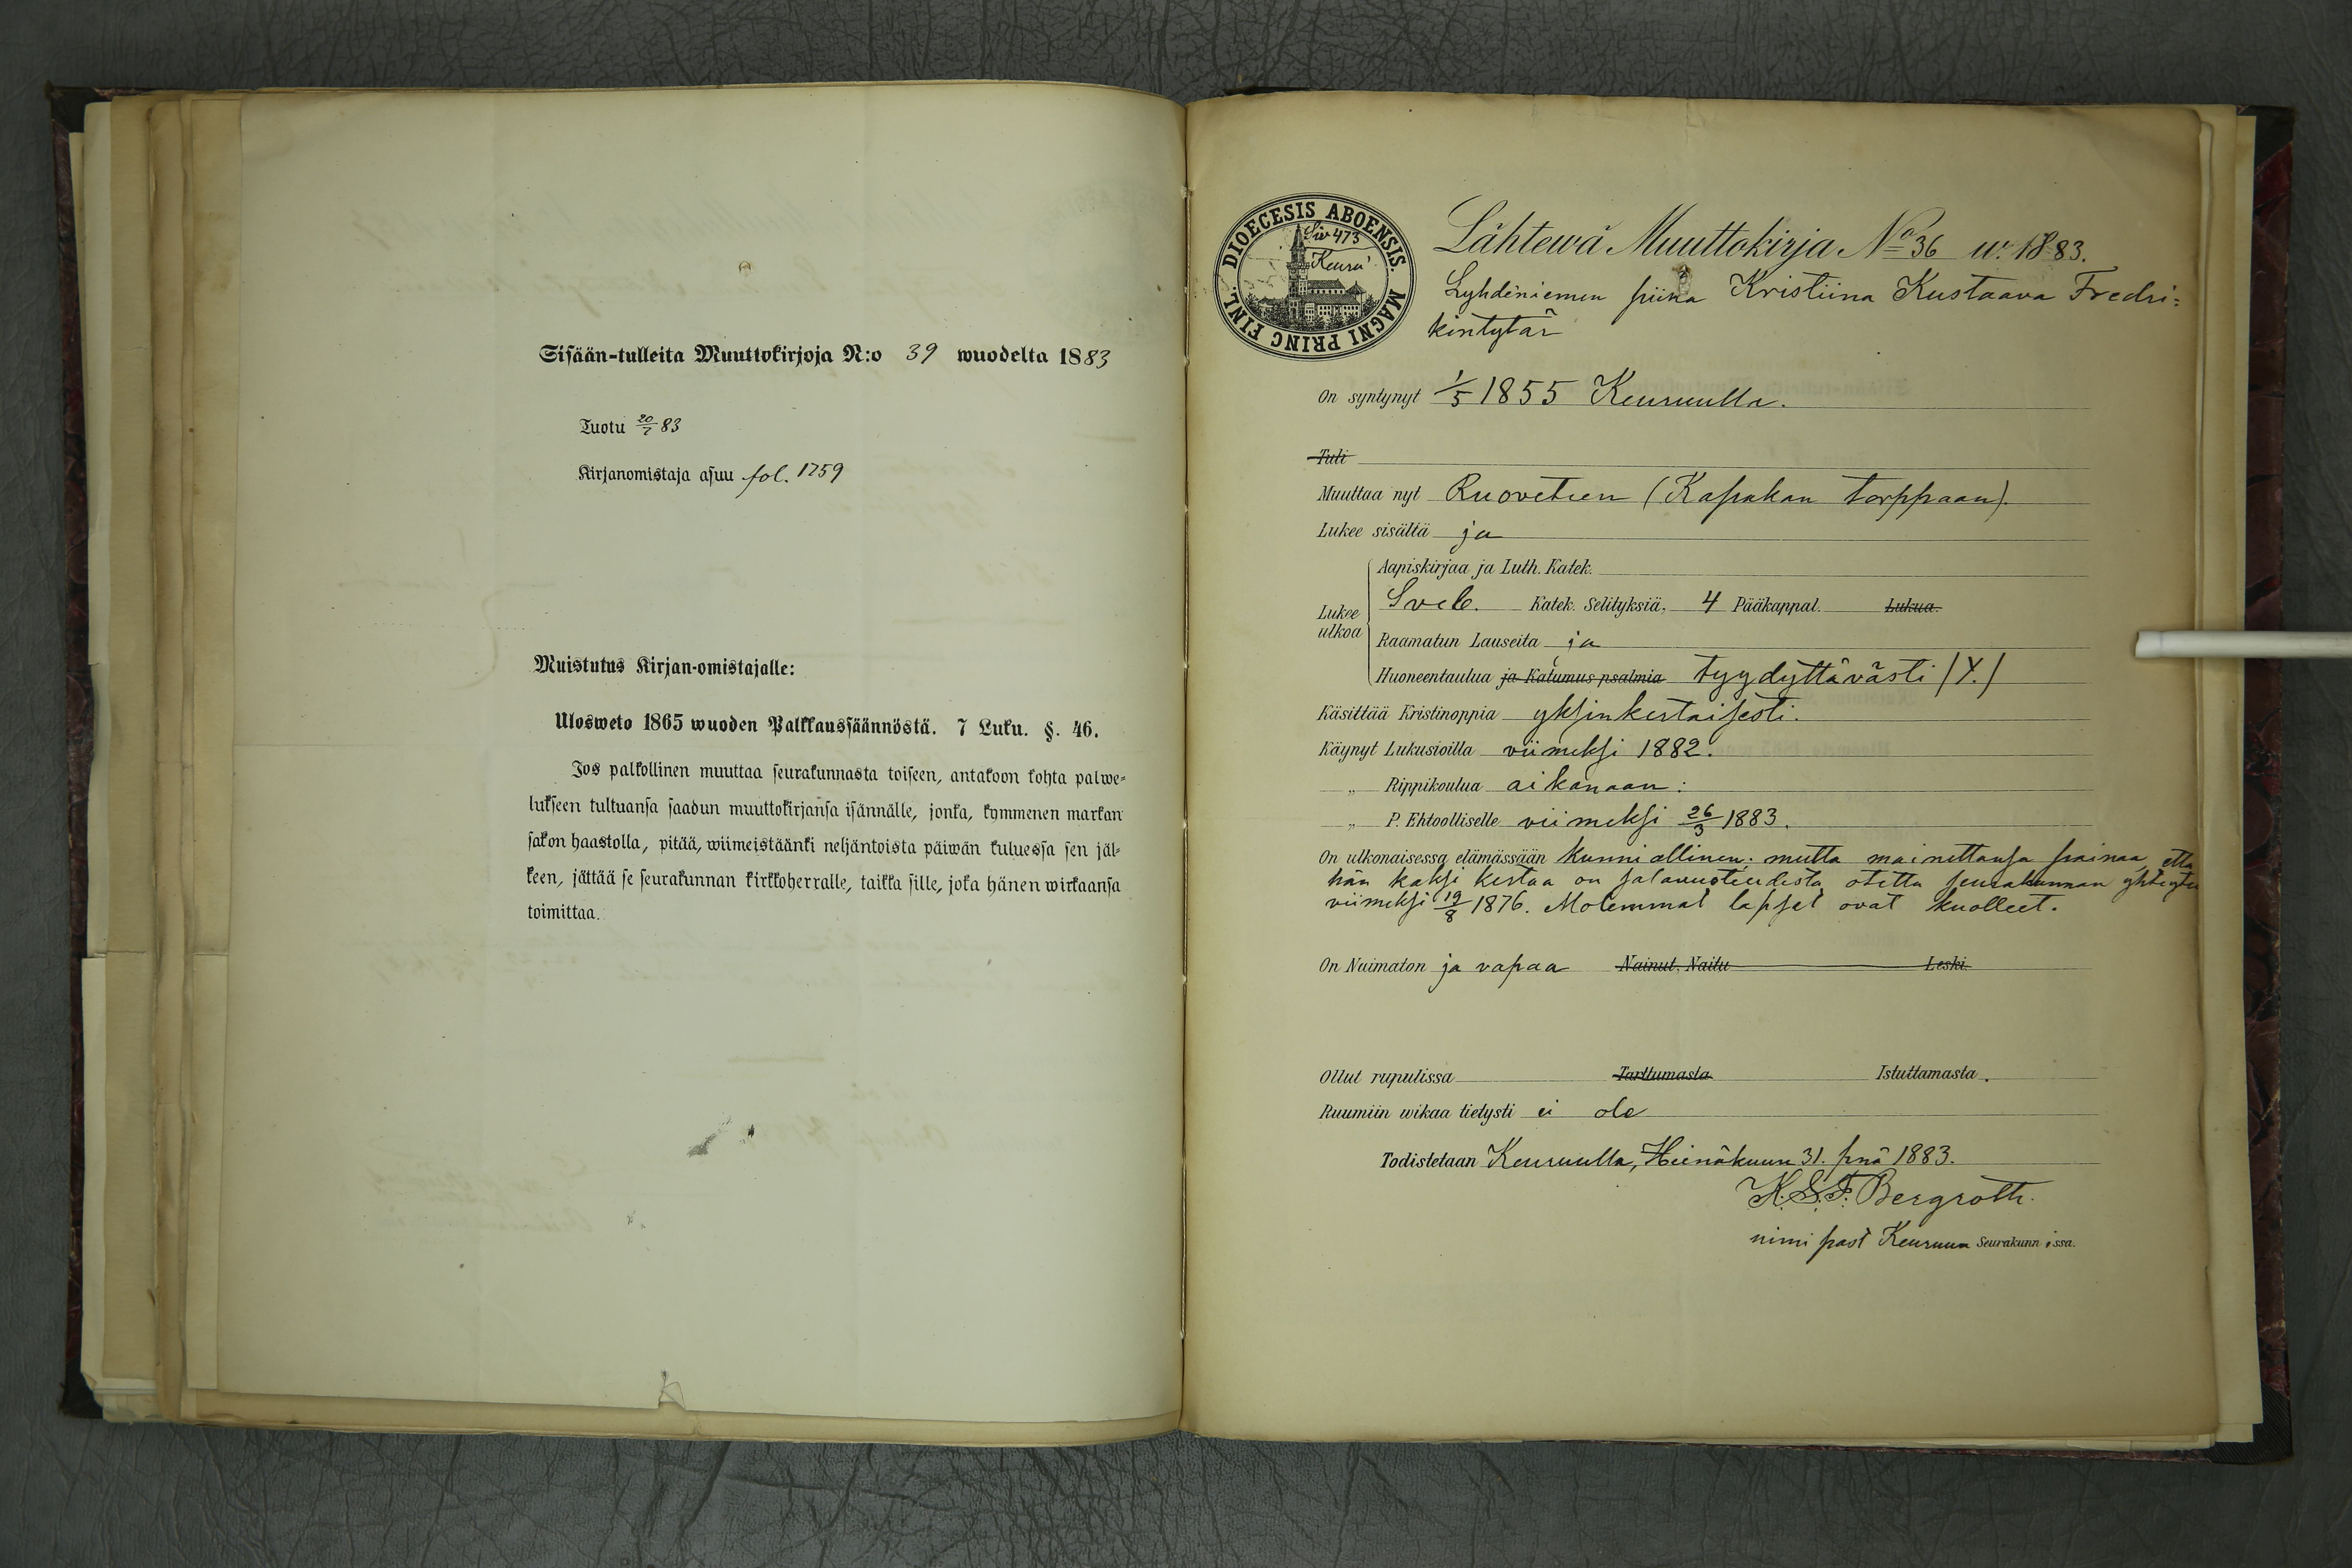 Sisään-tulleita Muuttokirjoja N:o 39 wuodelta 1883
Tuotu 20/7 83
Kirjanomistaja asuu fol. 1259
Muistutus Kirjan-omistajalle:
Ulosweto 1865 wuoden Palkkaussäännöstä. 7 Luku. §. 46.
Jos palkollinen muuttaa seurakunnasta toiseen, antakoon kohta palwe-
lukseen tultuansa saadun muuttokirjansa isännälle, jonka, kymmenen markan
sakon haastolla, pitää, wiimeistäänki neljäntoista päiwän kuluessa sen jäl-
keen, jättää se seurakunnan kirkkoherralle, taikka sille, joka hänen wirkaansa
toimittaa.
DIOECESIS ABOENSIS. MAGNI PRINC FINL.
Siv 473
Keuru
Lähtewä Muuttokirja No 36 w. 1883.
Lyhdeniemen piika Kristiina Kustaava Fredri:
kintytär
On syntynyt 1/5 1855 Keuruulla.
Tuli
Muuttaa nyt Ruoveteen (Kapakan torppaan).
Lukee sisältä ja
Aapiskirjaa ja Luth. Katek.
Lukee ulkoa
Sveb. Katek. Selityksiä, 4 Pääkappal. Lukua.
Raamatun Lauseita ja
Huoneentaulua ja Katumus psalmia tyydyttävästi (Y.)
Käsittää Kristinoppia yksinkertaisesti.
Käynyt Lukusioilla viimeksi 1882.
„ Rippikoulua aikanaan:
„ P. Ehtoolliselle viimeksi 26/3 1883.
On ulkonaisessa elämässään kunniallinen: mutta mainittansa että
hän kaksi kertaa on salavuoteudesta otettu seurakunnan yhteyte
viimeksi 19/8 1876. Molemmat lapset ovat kuolleet.
On Naimaton ja vapaa Nainut, Naitu Leski.
Ollut rupulissa Tarttumasta Istuttamasta.
Ruumiin wikaa tietysti ei ole
Todistetaan Keuruulla, Heinäkuun 31. pnä 1883.
K. S. F. Bergroth.
nimi past Keuruun Seurakunnissa.